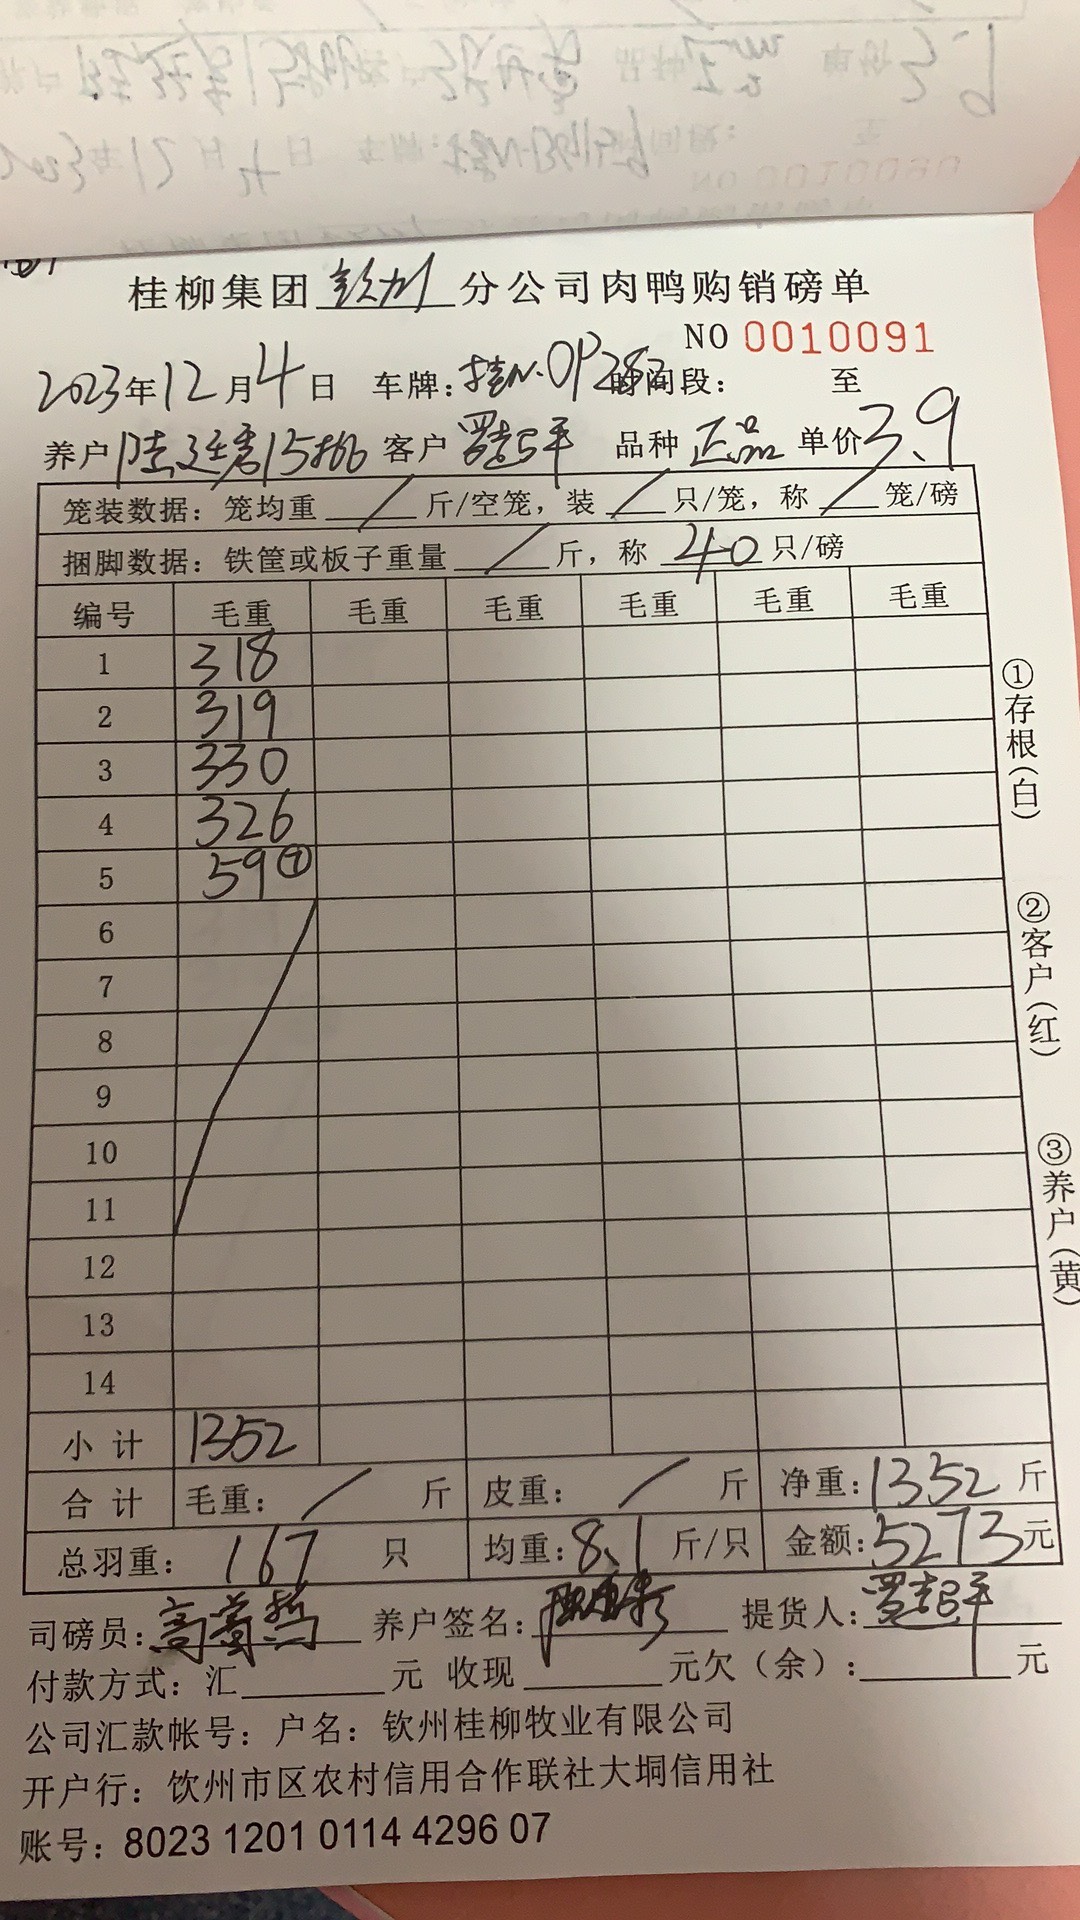 桂柳集团 钦州 分公司肉鸭购销磅单
NO 0010091
2023年12月4日 车牌:桂N·0P282 时间段: 至
养户 陆廷君15批 客户 罗起平 品种 正品 单价3.9
笼装数据:笼均重 / 斤/空笼,装 / 只/笼,称 / 笼/磅
捆脚数据:铁筐或板子重量 / 斤,称 40 只/磅
编号 毛重 毛重 毛重 毛重 毛重 毛重
1 318
2 319
3 330
4 326
5 59⑦
6
7
8
9
10
11
12
13
14
小计 1352
合计 毛重: / 斤 皮重: / 斤 净重:1352 斤
总羽重: 167 只 均重:8.1 斤/只 金额:5273元
司磅员: 养户签名: 提货人:罗起平
付款方式:汇 元 收现 元欠(余): 元
公司汇款帐号:户名:钦州桂柳牧业有限公司
开户行:钦州市区农村信用合作联社大垌信用社
账号:8023 1201 0114 4296 07
①存根(白)
②客户(红)
③养户(黄)